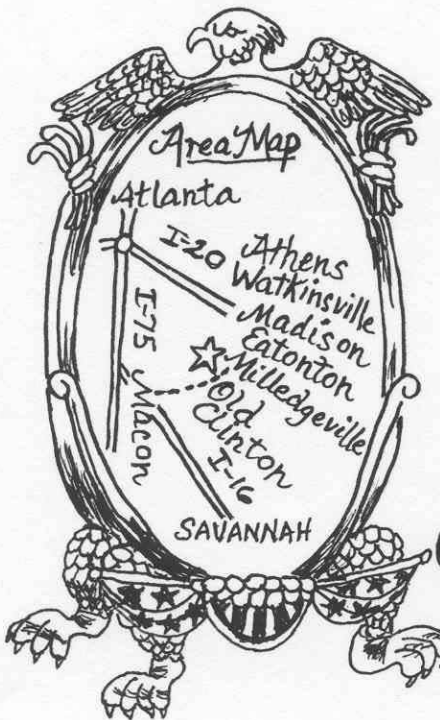 Area Map
Atlanta
I-20
Athens
Watkinsville
Madison
Eatonton
Milledgeville
I-75
Macon
Old
Clinton
I-16
SAVANNAH